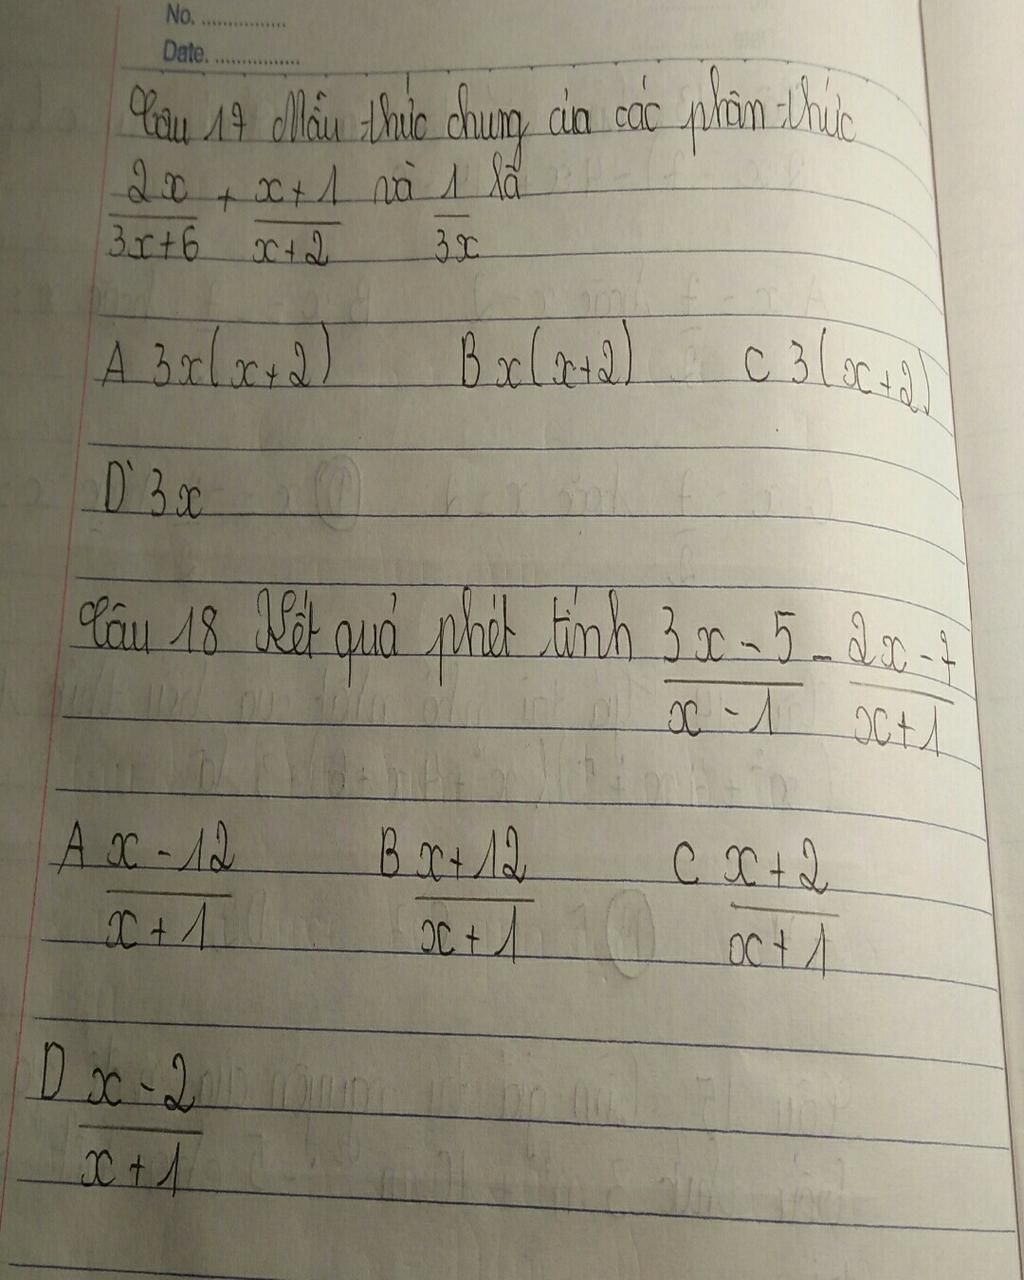 No. ................
Date. ................
Câu 17 Mẫu thức chung của các phân thức
2x/3x+6 + x+1/x+2 và 1/3x là
A 3x(x+2) B x(x+2) C 3(x+2)
D 3x
Câu 18 Kết quả phét tính 3x-5/x-1 - 2x-7/x+1
A x-12/x+1 B x+12/x+1 C x+2/x+1
D x-2/x+1